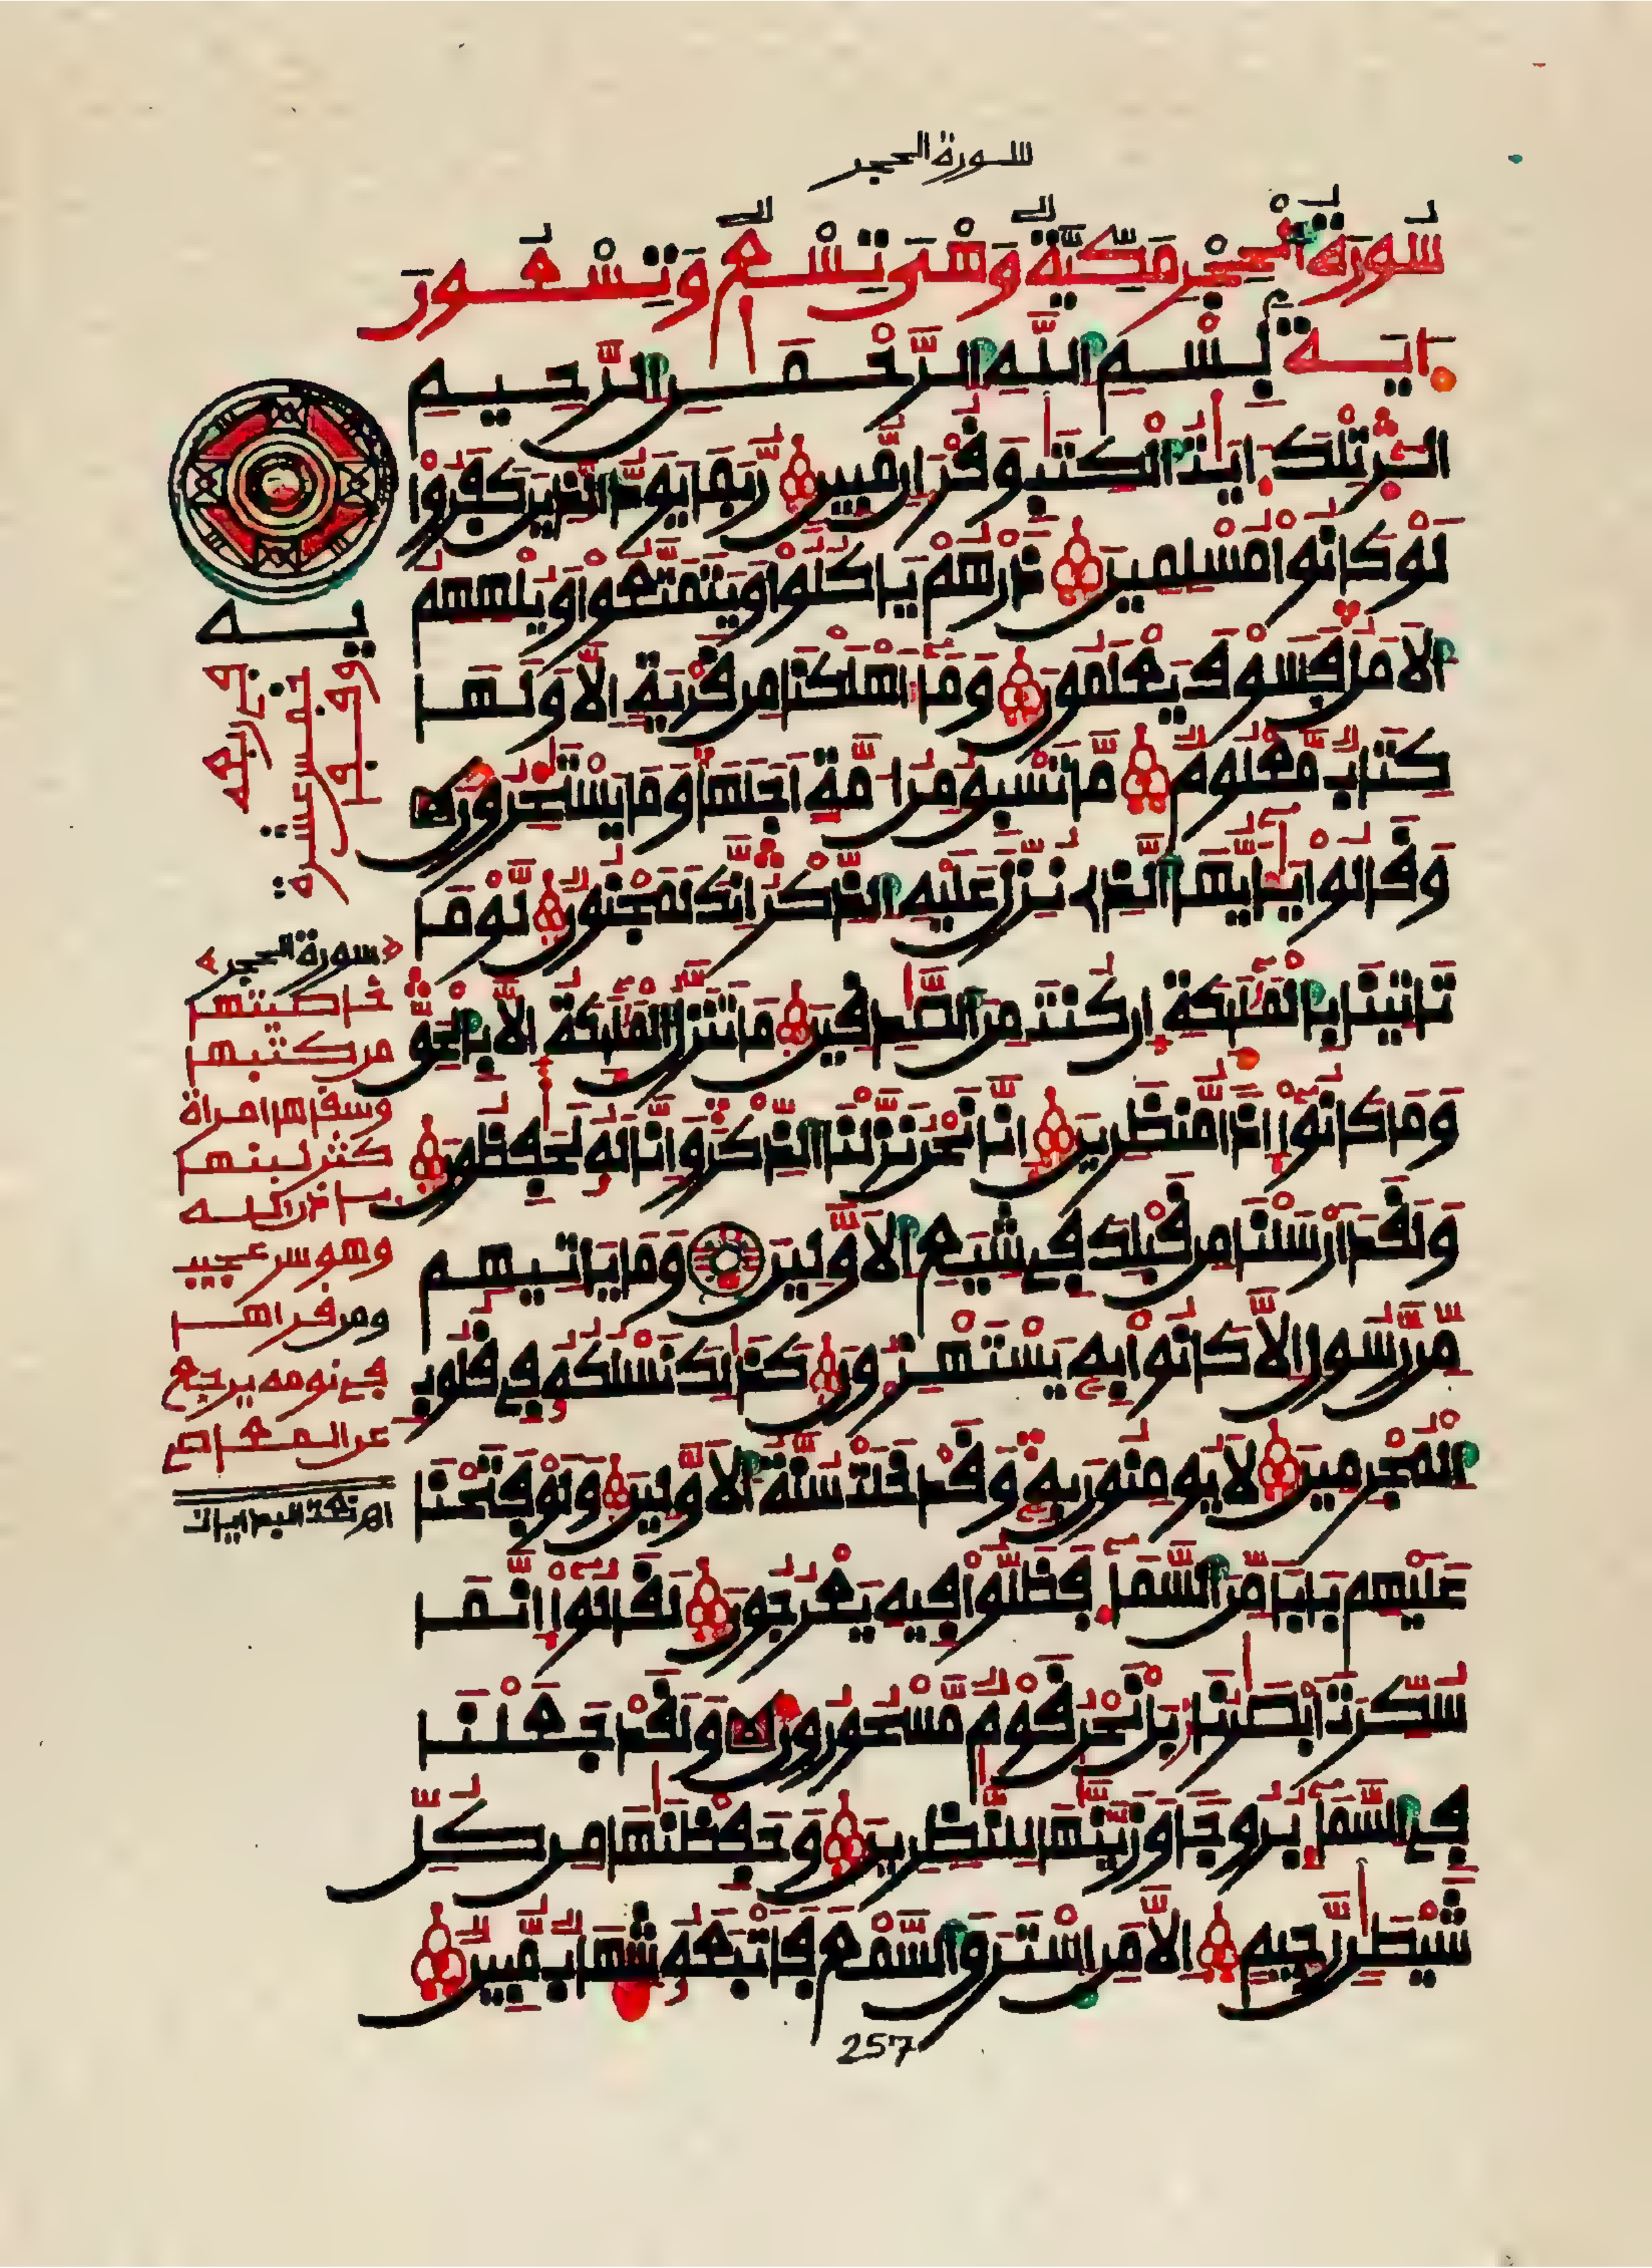 سورة الحجر
سُورَةُ الْحِجْرِ مَكِّيَّةٌ وَهْىَ تِسْعٌ وَتِسْعُونَ
ءَايَةً بِسْمِ اللَّهِ الرَّحْمَٰنِ الرَّحِيمِ
الٓرۚ تِلْكَ ءَايَٰتُ الْكِتَٰبِ وَقُرْءَانٍ مُّبِينٍ رُّبَمَا يَوَدُّ الَّذِينَ كَفَرُوا
لَوْ كَانُوا مُسْلِمِينَ ذَرْهُمْ يَاكُلُوا وَيَتَمَتَّعُوا وَيُلْهِهِمُ
الَامَلُ فَسَوْفَ يَعْلَمُونَ وَمَا أَهْلَكْنَا مِن قَرْيَةٍ الَّا وَلَهَا
كِتَابٌ مَّعْلُومٌ مَّا تَسْبِقُ مِنُ امَّةٍ اجَلَهَا وَمَا يَسْتَٰخِرُونَ
وَقَالُوا يَٰأَيُّهَا الَّذِي نُزِّلَ عَلَيْهِ الذِّكْرُ إِنَّكَ لَمَجْنُونٌ لَّوْ مَا
تَاتِينَا بِالْمَلَٰئِكَةِ إِن كُنتَ مِنَ الصَّٰدِقِينَ مَا تَنَزَّلُ الْمَلَٰئِكَةُ إِلَّا بِالْحَقِّ
وَمَا كَانُوا إِذًا مُّنظَرِينَ إِنَّا نَحْنُ نَزَّلْنَا الذِّكْرَ وَإِنَّا لَهُ لَحَٰفِظُونَ
وَلَقَدَ ارْسَلْنَا مِن قَبْلِكَ فِي شِيَعِ الَاوَّلِينَ وَمَا يَاتِيهِم
مِّن رَّسُولٍ الَّا كَانُوا بِهِ يَسْتَهْزِءُونَ كَذَٰلِكَ نَسْلُكُهُ فِي قُلُوبِ
الْمُجْرِمِينَ لَا يُومِنُونَ بِهِ وَقَدْ خَلَتْ سُنَّةُ الَاوَّلِينَ وَلَوْ فَتَحْنَا
عَلَيْهِم بَابًا مِّنَ السَّمَاءِ فَظَلُّوا فِيهِ يَعْرُجُونَ لَقَالُوا إِنَّمَا
سُكِّرَتَ ابْصَٰرُنَا بَلْ نَحْنُ قَوْمٌ مَّسْحُورُونَ وَلَقَدْ جَعَلْنَا
فِي السَّمَاءِ بُرُوجًا وَزَيَّنَّٰهَا لِلنَّٰظِرِينَ وَحَفِظْنَٰهَا مِن كُلِّ
شَيْطَٰنٍ رَّجِيمٍ الَّا مَنِ اسْتَرَقَ السَّمْعَ فَأَتْبَعَهُ شِهَابٌ مُّبِينٌ
خمس عشرة
سورة الحجر
خاصيتها
من كتبها
وسقاها امراة
كثر لبنها
باذن الله
وهو سر عجيب
ومن قراها
في نومه يرجع
عن المعاصي
257